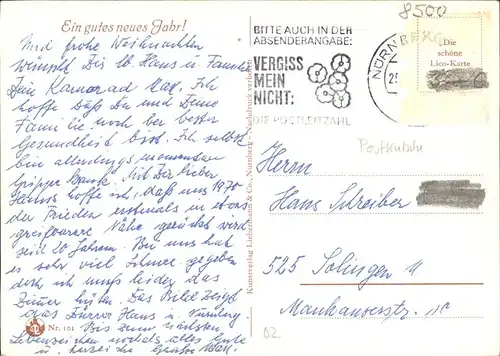 Ein gutes neues Jahr!
Und frohe Weihnachten
wünscht Dir lb Hans u Familie
Dein Kamerad Max. Ich
hoffe daß Du und Deine
Familie noch bei bester
Gesundheit bist. Ich selbst
bin allerdings momentan
Grippe krank. Mit Dir lieber
Hanns hoffe ich, daß uns 1970
der Frieden erstmals in etwas
greifbarere Nähe gerückt wird
seid 20 Jahren. Bei uns hat
es sehr viel Schnee gegeben
doch ich muß leider das
Zimmer hüten. Das Bild zeigt
das Dürrer Haus in Nürnberg
Bis zum nächsten
Lebenszeichen nochmals alles Gute
u. herzliche Grüße Max.
Nr. 101
Kunstverlag Liebermann & Co., Nürnberg - Nachdruck verboten
BITTE AUCH IN DER
ABSENDERANGABE:
VERGISS
MEIN
NICHT:
DIE POSTLEITZAHL
NÜRNBERG
8500
Die
schöne
Lico-Karte
Postkutsche
Herrn
Hans Schreiber
525 Solingen
02